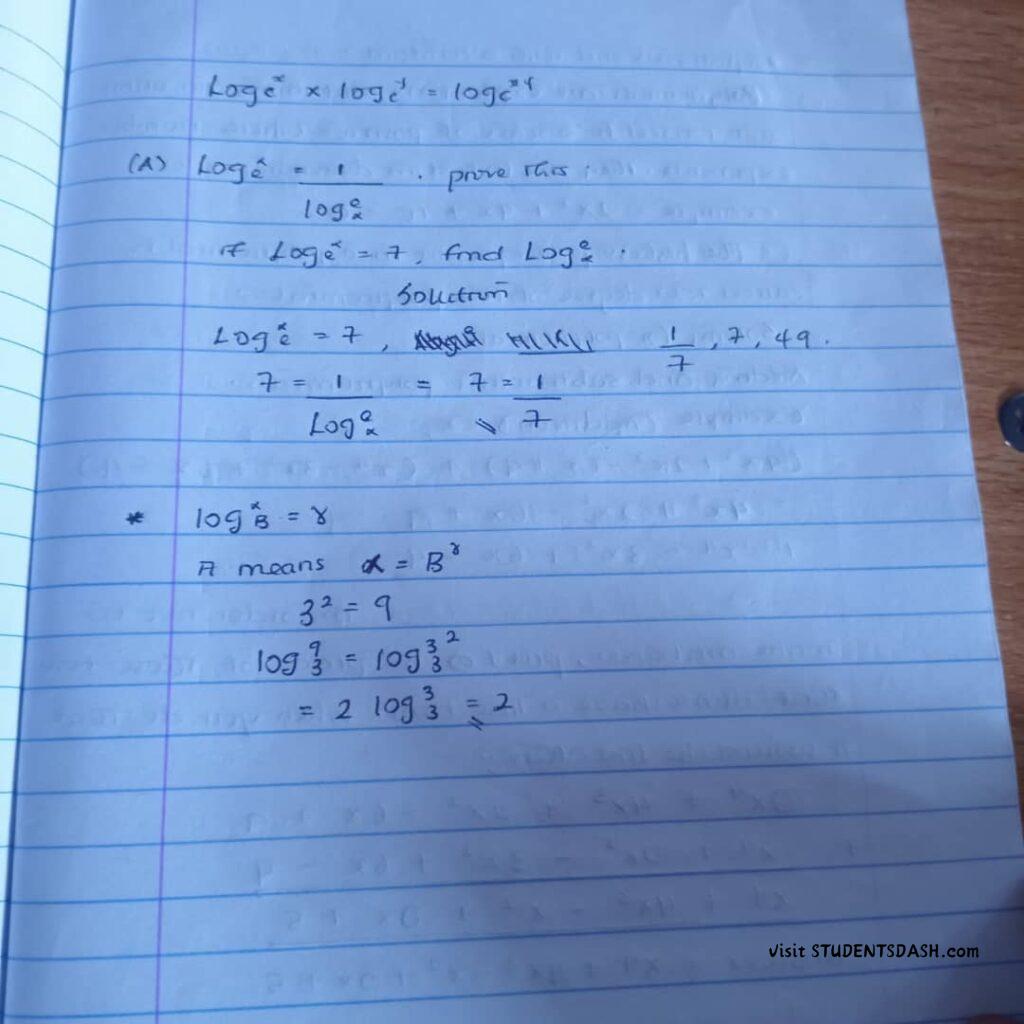 Log e^x × log e^y = log e^xy
(A) Log e^x = 1/log x^e . prove this :
If Log e^x = 7, find Log x^e .
Solution
Log e^x = 7, 1/7, 7, 49.
7 = 1/Log x^e = 7 = 1/7
* log B^α = γ
It means α = B^γ
3² = 9
log 3^9 = log 3^3²
= 2 log 3^3 = 2
visit STUDENTSDASH.com